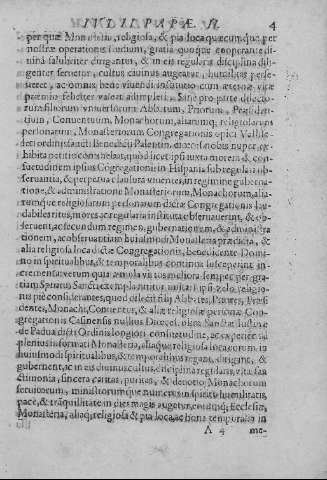 4
per quæ Monasteria, religiosa, & pia loca quæcumque per
nostræ operationis studium, gratia quoque cooperante di-
uina salubriter dirigantur, & in eis regularis disciplina dili-
genter seruetur, cultus diuinus augeatur, humilitas perse-
ueret, ac omnes bene viuendi
præmio feliciter valeat adimpleri. Sane pro parte dilecto-
rum filiorum vniuersorum Abbatum, Priorum, Præsiden-
tium, Conuentuum, Monachorum, aliarumq; religiosarum
personarum, Monasteriorum Congregationis
Ordinis sancti Benedicti Palentin. diœcesis nobis nuper ex-
hibita petitio continebat, quod licet ipsi iuxta morem & con-
suetudinem ipsius Cõgregationis in Hispania sub regulari ob-
seruantia, & perpetua clausura viuentes, in regimine guberna-
tione, & administratione Monasteriorum, Monachorum, alia-
rumque religiosarum personarum dictæ Congregationis lau-
dabiles ritus, mores, ac regularia instituta obseruauerint, & ob-
seruent, ac secundum regimen, gubernationem, & administra-
tionem, ac obseruantiam huiusmodi Monasteria prædicta, &
alia religiosa loca dictæ Congregationis, benedicente Domi-
no in spiritualibus, & temporalibus continua susceperint in-
crementa verum quia zelo religio-
nis pie considerantes, quod dilecti filij Abbates, Priores, Præsi-
dentes, Monachi, Conuentus, & aliæ religiosæ personæ Con-
gregationis Casinensis nullius Diœces. olim Sanctæ Iustinæ
de Padua dicti Ordinis longiori consuetudine, ac experientia
plenius informati Monasteria, aliaque religiosa loca eorum in
huiusmodi spiritualibus, & temporalibus regant, dirigant, &
gubernent, ac in eis diuinus cultus, disciplina regularis, vita, san-
ctimonia, sincera caritas, puritas, & deuotio Monachorum
seruitorum, ministrorumque nuncæ in spiritu humilitatis,
pace, & trãquilitate in dies magis augetur, eorumq; Ecclesiæ,
Monasteria, aliaq; religiosa & pia loca, ac bona temporalia in
A 4 me-